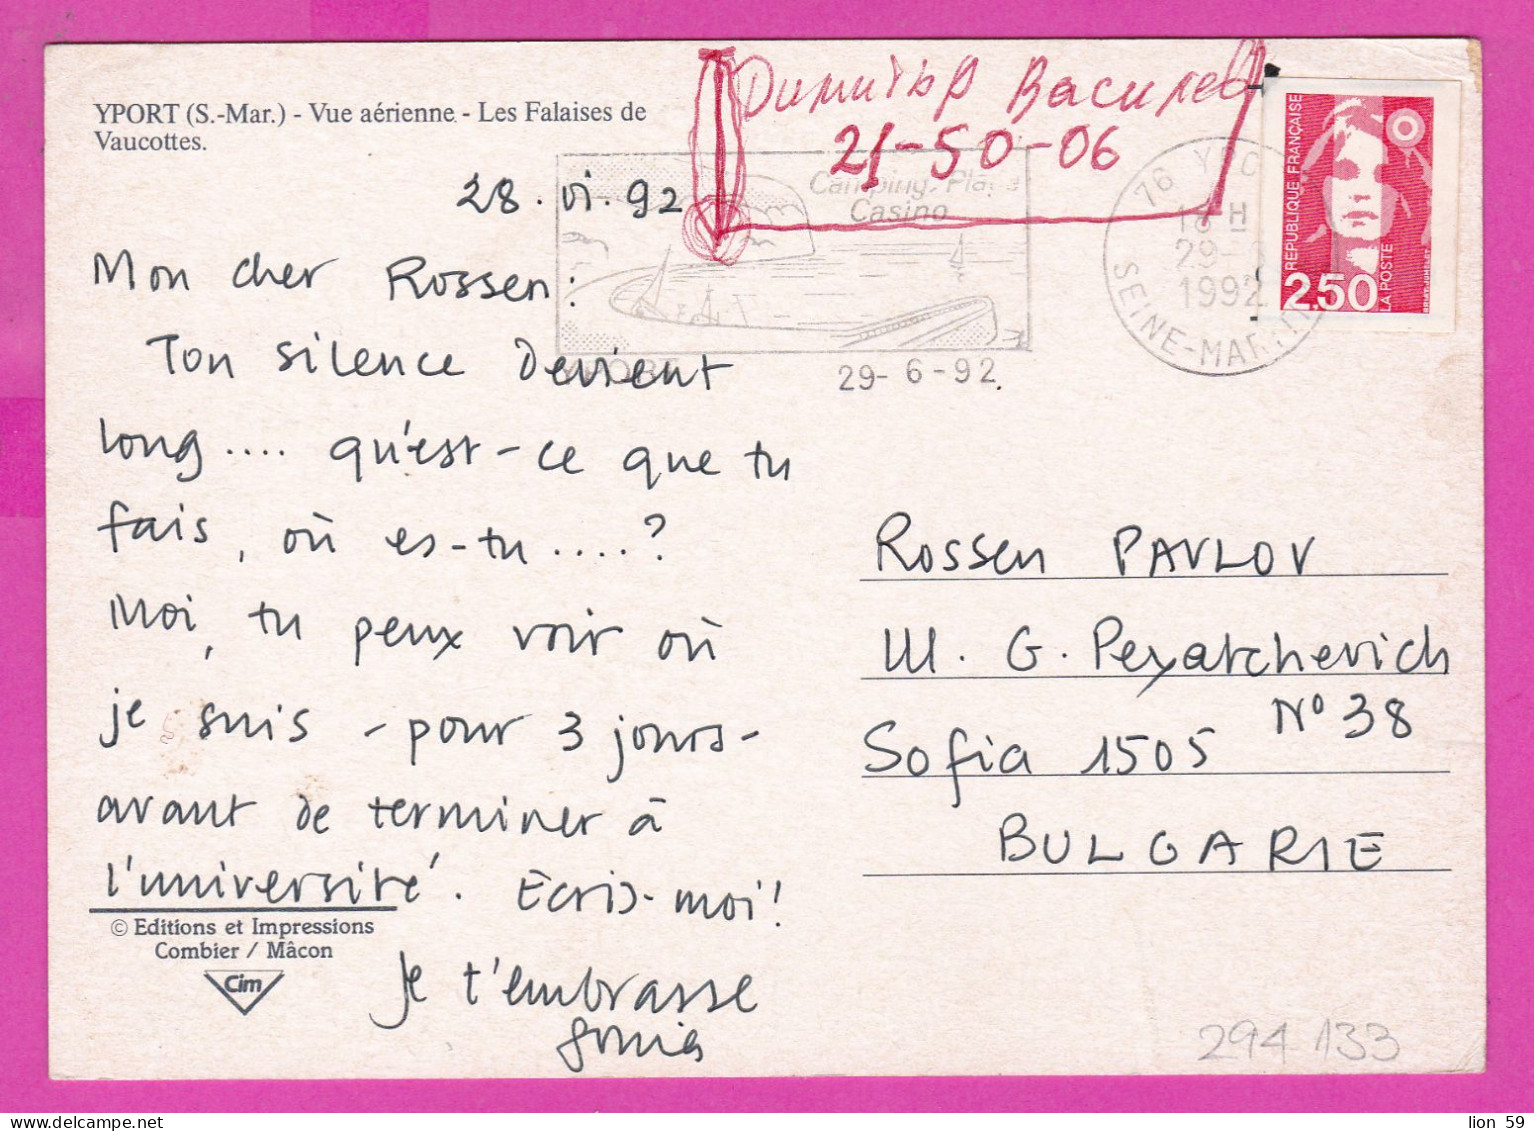 YPORT (S.-Mar.) - Vue aérienne - Les Falaises de
Vaucottes.
Димитър Василев
21-50-06
28.VI.92
Camping. Plage
Casino
YPORT
29- 6 -92
76 YPO
18 H
29-
1992
SEINE-MARIT
REPUBLIQUE FRANÇAISE
2,50
LA POSTE
Mon cher Rossen:
Ton silence devient
long.... qu'est-ce que tu
fais, où es-tu....?
Moi, tu peux voir où
je suis - pour 3 jours -
avant de terminer à
l'université. Ecris-moi!
Je t'embrasse
Sonia
© Editions et Impressions
Combier / Mâcon
Cim
Rossen PAVLOV
Ul. G. Peyatchevich
N° 38
Sofia 1505
BULGARIE
294 133
lion 59